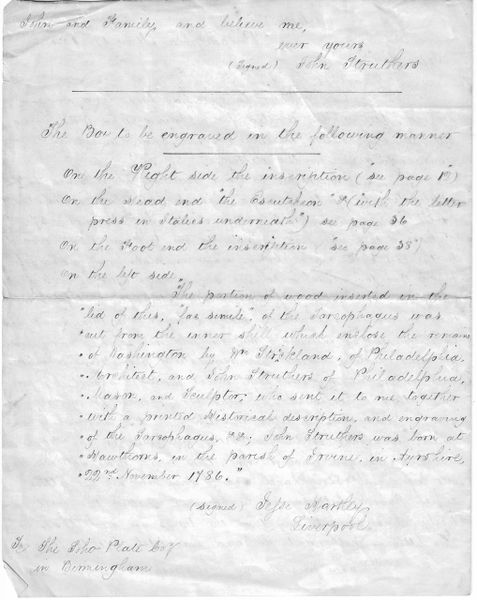 John and Family, and believe me,
ever yours
(Signed) John Struthers
The Box to be engraved in the following manner
On the Right side the inscription ("see page 1")
On the Head end "the Escutcheon" &(with the letter
press in Italics underneath") see page 36
On the Foot end the inscription ("see page 38")
On the left side,
"The portion of wood inserted in the
"lid of this, "fac simile," of the Sarcophagus was
"cut from the inner shell which inclose the remains
"of Washington by Wm Strickland, of Philadelphia,
"Architect, and John Struthers of Philadelphia,
"Mason, and Sculptor, who sent it to me together
"with a printed Historical description, and engraving
"of the Sarcophagus, &c; John Struthers was born at
"Hawthorns, in the parish of Irvine, in Ayrshire,
"22nd November 1786."
(Signed) Jesse Hartley
Liverpool
To The Soho Plate Coy
in Birmingham